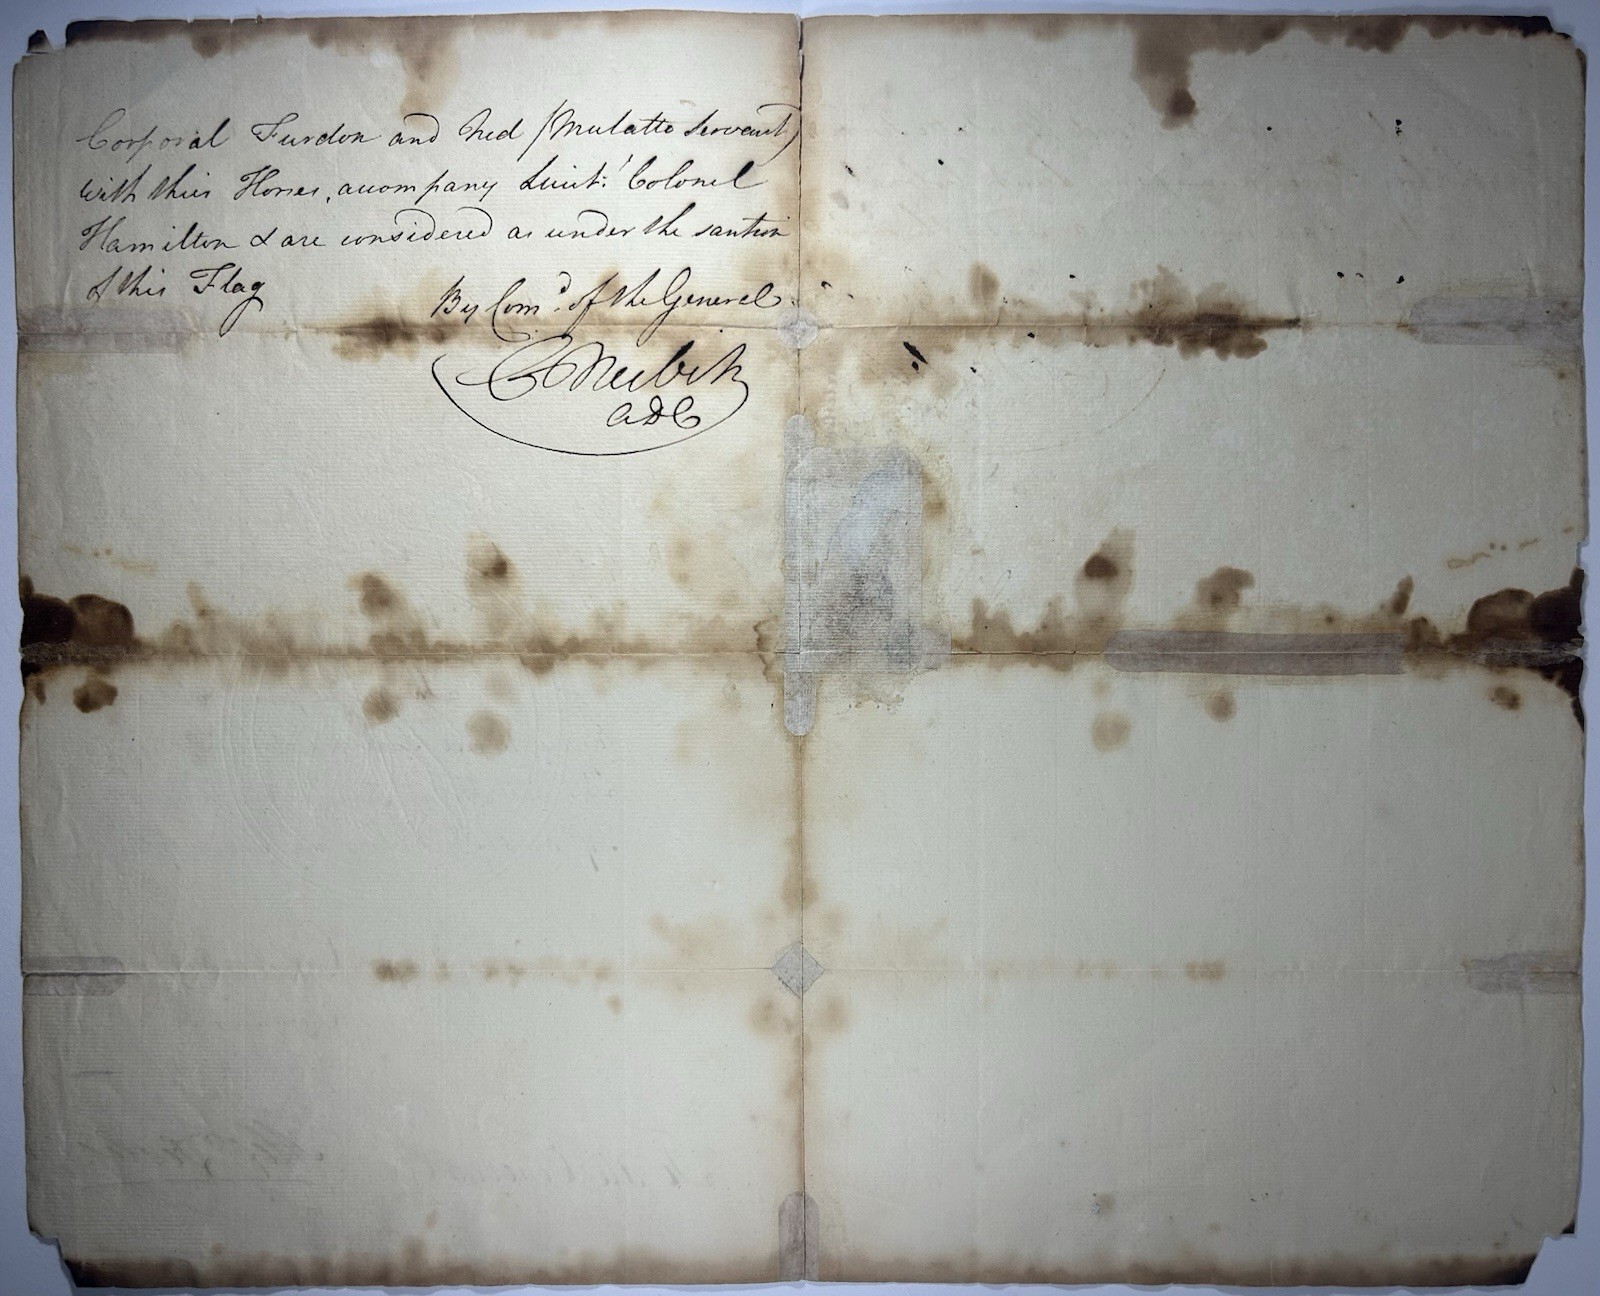 Corporal Furdon and Ned (Mulatto Servant)
with thier Horses, accompany Lieut:t Colonel
Hamilton & are considered as under the santion
of this Flag
By Com:d of the General
C Nesbitt
ADC